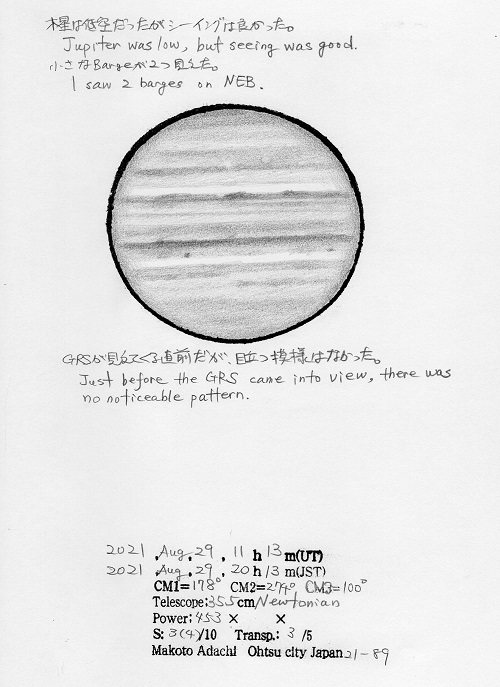 木星は低空だったがシーイングは良かった。
Jupiter was low, but seeing was good.
小さなBargeが2つ見えた。
I saw 2 barges on NEB.
GRSが見えてくる直前だが、目立つ模様はなかった。
Just before the GRS came into view, there was
no noticeable pattern.
2021 ,Aug, 29 , 11 h 13 m(UT)
2021 ,Aug, 29 , 20 h 13 m(JST)
CM1=178° CM2=274° CM3=100°
Telescope:355cm/Newtonian
Power:453 × ×
S: 3(4)/10 Transp.: 3 /5
Makoto Adachi Ohtsu city Japan 21-89